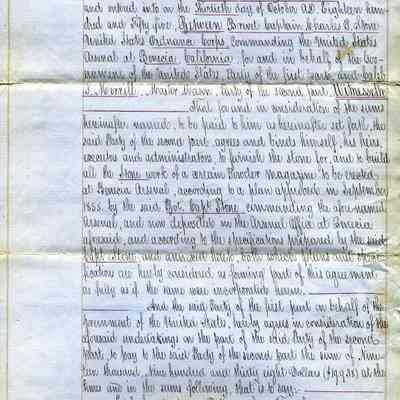 and entered into on the thirtieth day of October A.D. Eighteen hun-
dred and Fifty five, Between Brevet Captain Charles P. Stone
United States Ordnance Corps, Commanding the United States
Arsenal at Benicia California, for and in behalf of the Gov-
ernment of the United States, Party of the first part, and Caleb
S. Merrill, Master Mason, Party of the second part, Witnesseth
That for and in consideration of the sums
hereinafter named, to be paid to him as hereinafter set forth, the
said Party of the second part agrees and binds himself, his heirs,
executors and administrators, to furnish the stone for, and to build
all the Stone work of a certain Powder magazine to be erected
at Benicia Arsenal, according to a plan approved in September
1855, by the said Bvt. Capt. Stone, commanding the afore-named
Arsenal, and now deposited in the Arsenal Office at Benicia
aforesaid, and according to the specifications prepared by the said
Capt. Stone and annexed hereto, both which plans and speci-
fications are hereby considered as forming part of this agreement,
as fully as if the same were incorporated herein.
And the said Party of the first part in behalf of the
Government of the United States, hereby agrees in consideration of the
aforesaid undertakings on the part of the said Party of the second
part, to pay to the said Party of the second part the sum of Nine-
teen thousand, Nine hundred and thirty eight Dollars ($19,938) at the
times and in the sums following, that is to say: